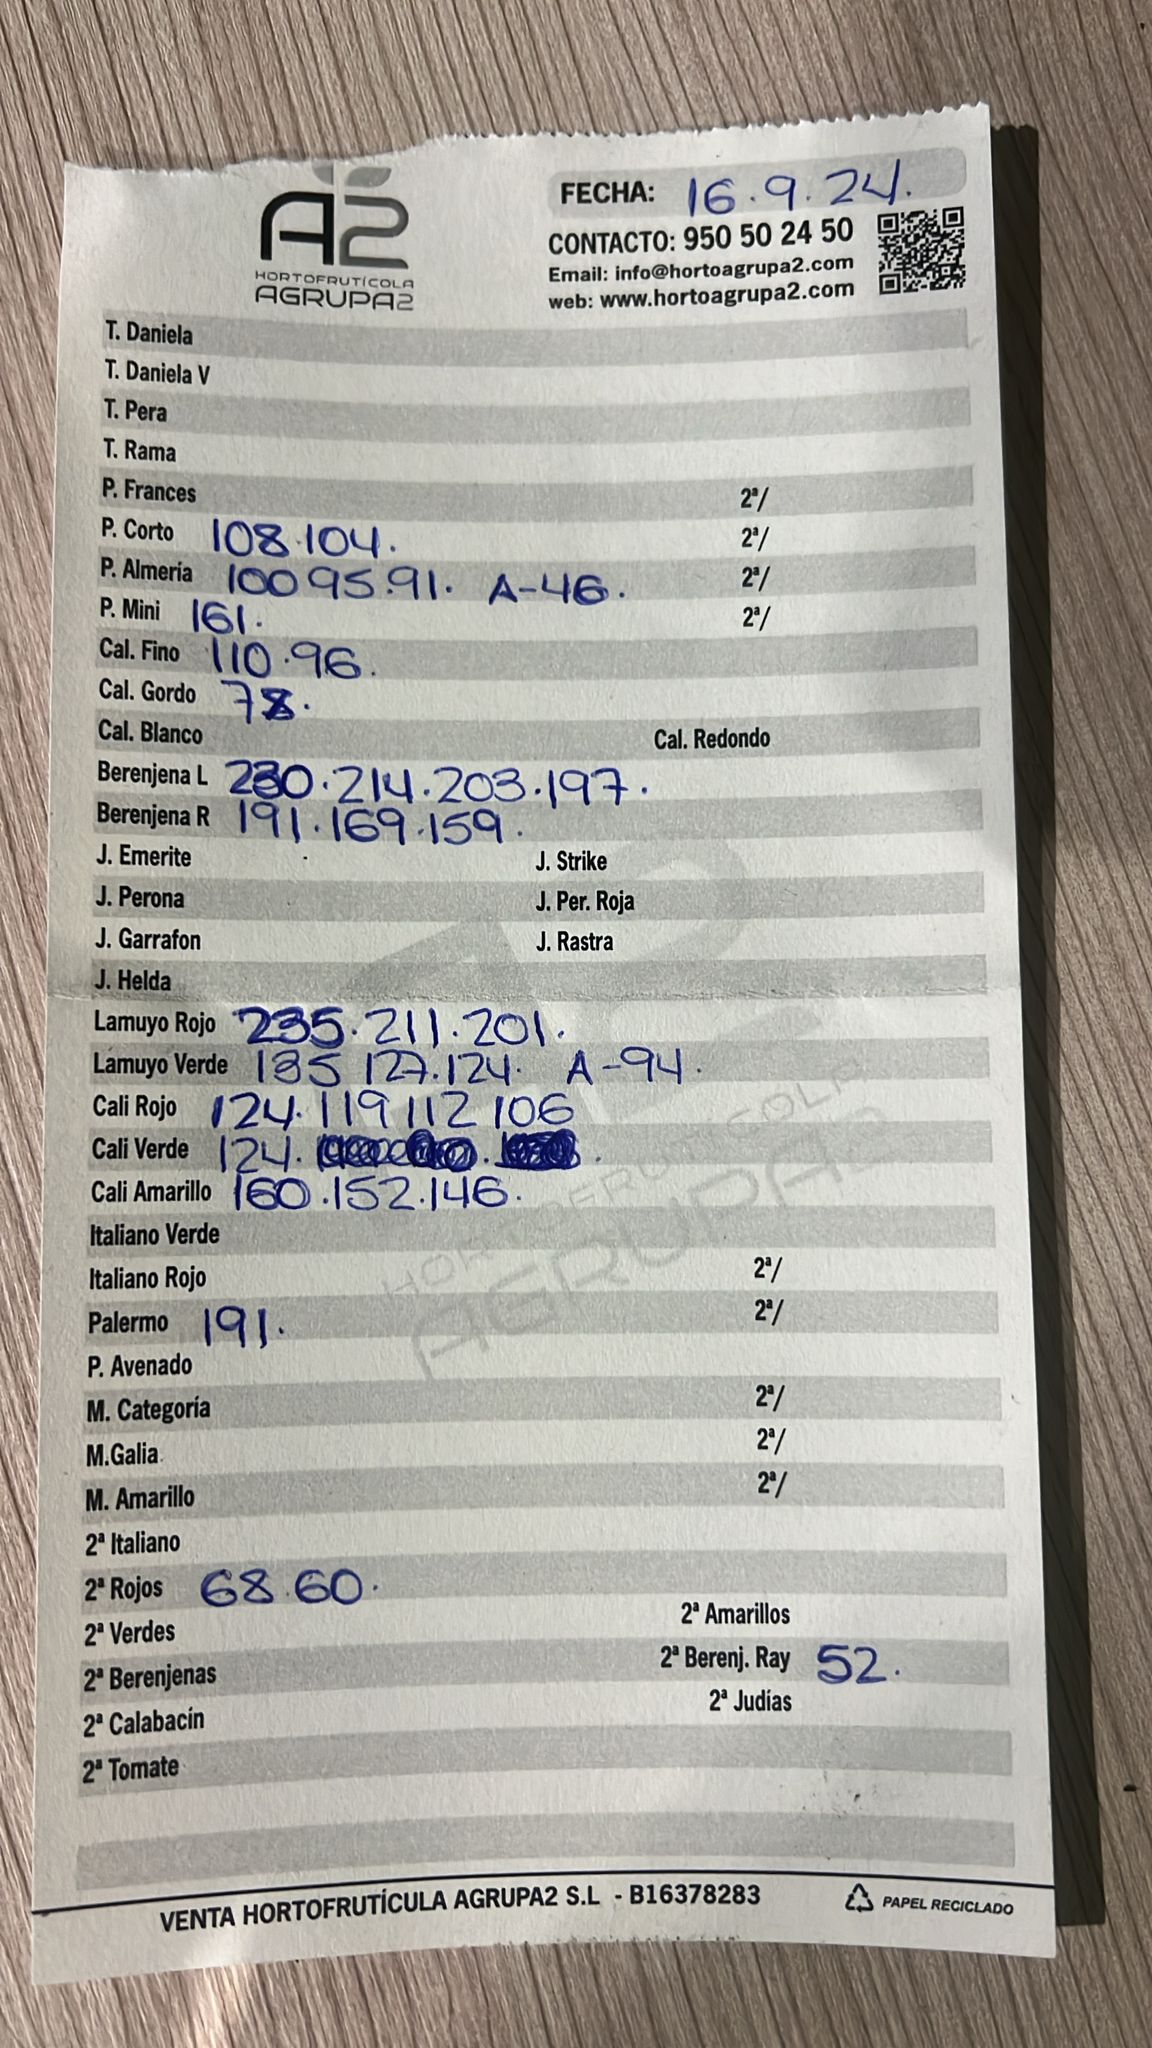 A2
HORTOFRUTÍCOLA
AGRUPA2
FECHA: 16.9.24.
CONTACTO: 950 50 24 50
Email: info@hortoagrupa2.com
web: www.hortoagrupa2.com
T. Daniela
T. Daniela V
T. Pera
T. Rama
P. Frances 2ª/
P. Corto 108.104. 2ª/
P. Almeria 100 95.91. A-46. 2ª/
P. Mini 161. 2ª/
Cal. Fino 110.96.
Cal. Gordo 78.
Cal. Blanco Cal. Redondo
Berenjena L 230.214.203.197.
Berenjena R 191.169.159.
J. Emerite J. Strike
J. Perona J. Per. Roja
J. Garrafon J. Rastra
J. Helda
Lamuyo Rojo 235.211.201.
Lamuyo Verde 135 127.124. A-94.
Cali Rojo 124.119 112 106
Cali Verde 124.
Cali Amarillo 160.152.146.
Italiano Verde
Italiano Rojo 2ª/
Palermo 191. 2ª/
P. Avenado
M. Categoría 2ª/
M.Galia 2ª/
M. Amarillo 2ª/
2ª Italiano
2ª Rojos 68.60.
2ª Verdes 2ª Amarillos
2ª Berenjenas 2ª Berenj. Ray 52.
2ª Calabacín 2ª Judías
2ª Tomate
VENTA HORTOFRUTÍCULA AGRUPA2 S.L - B16378283 PAPEL RECICLADO